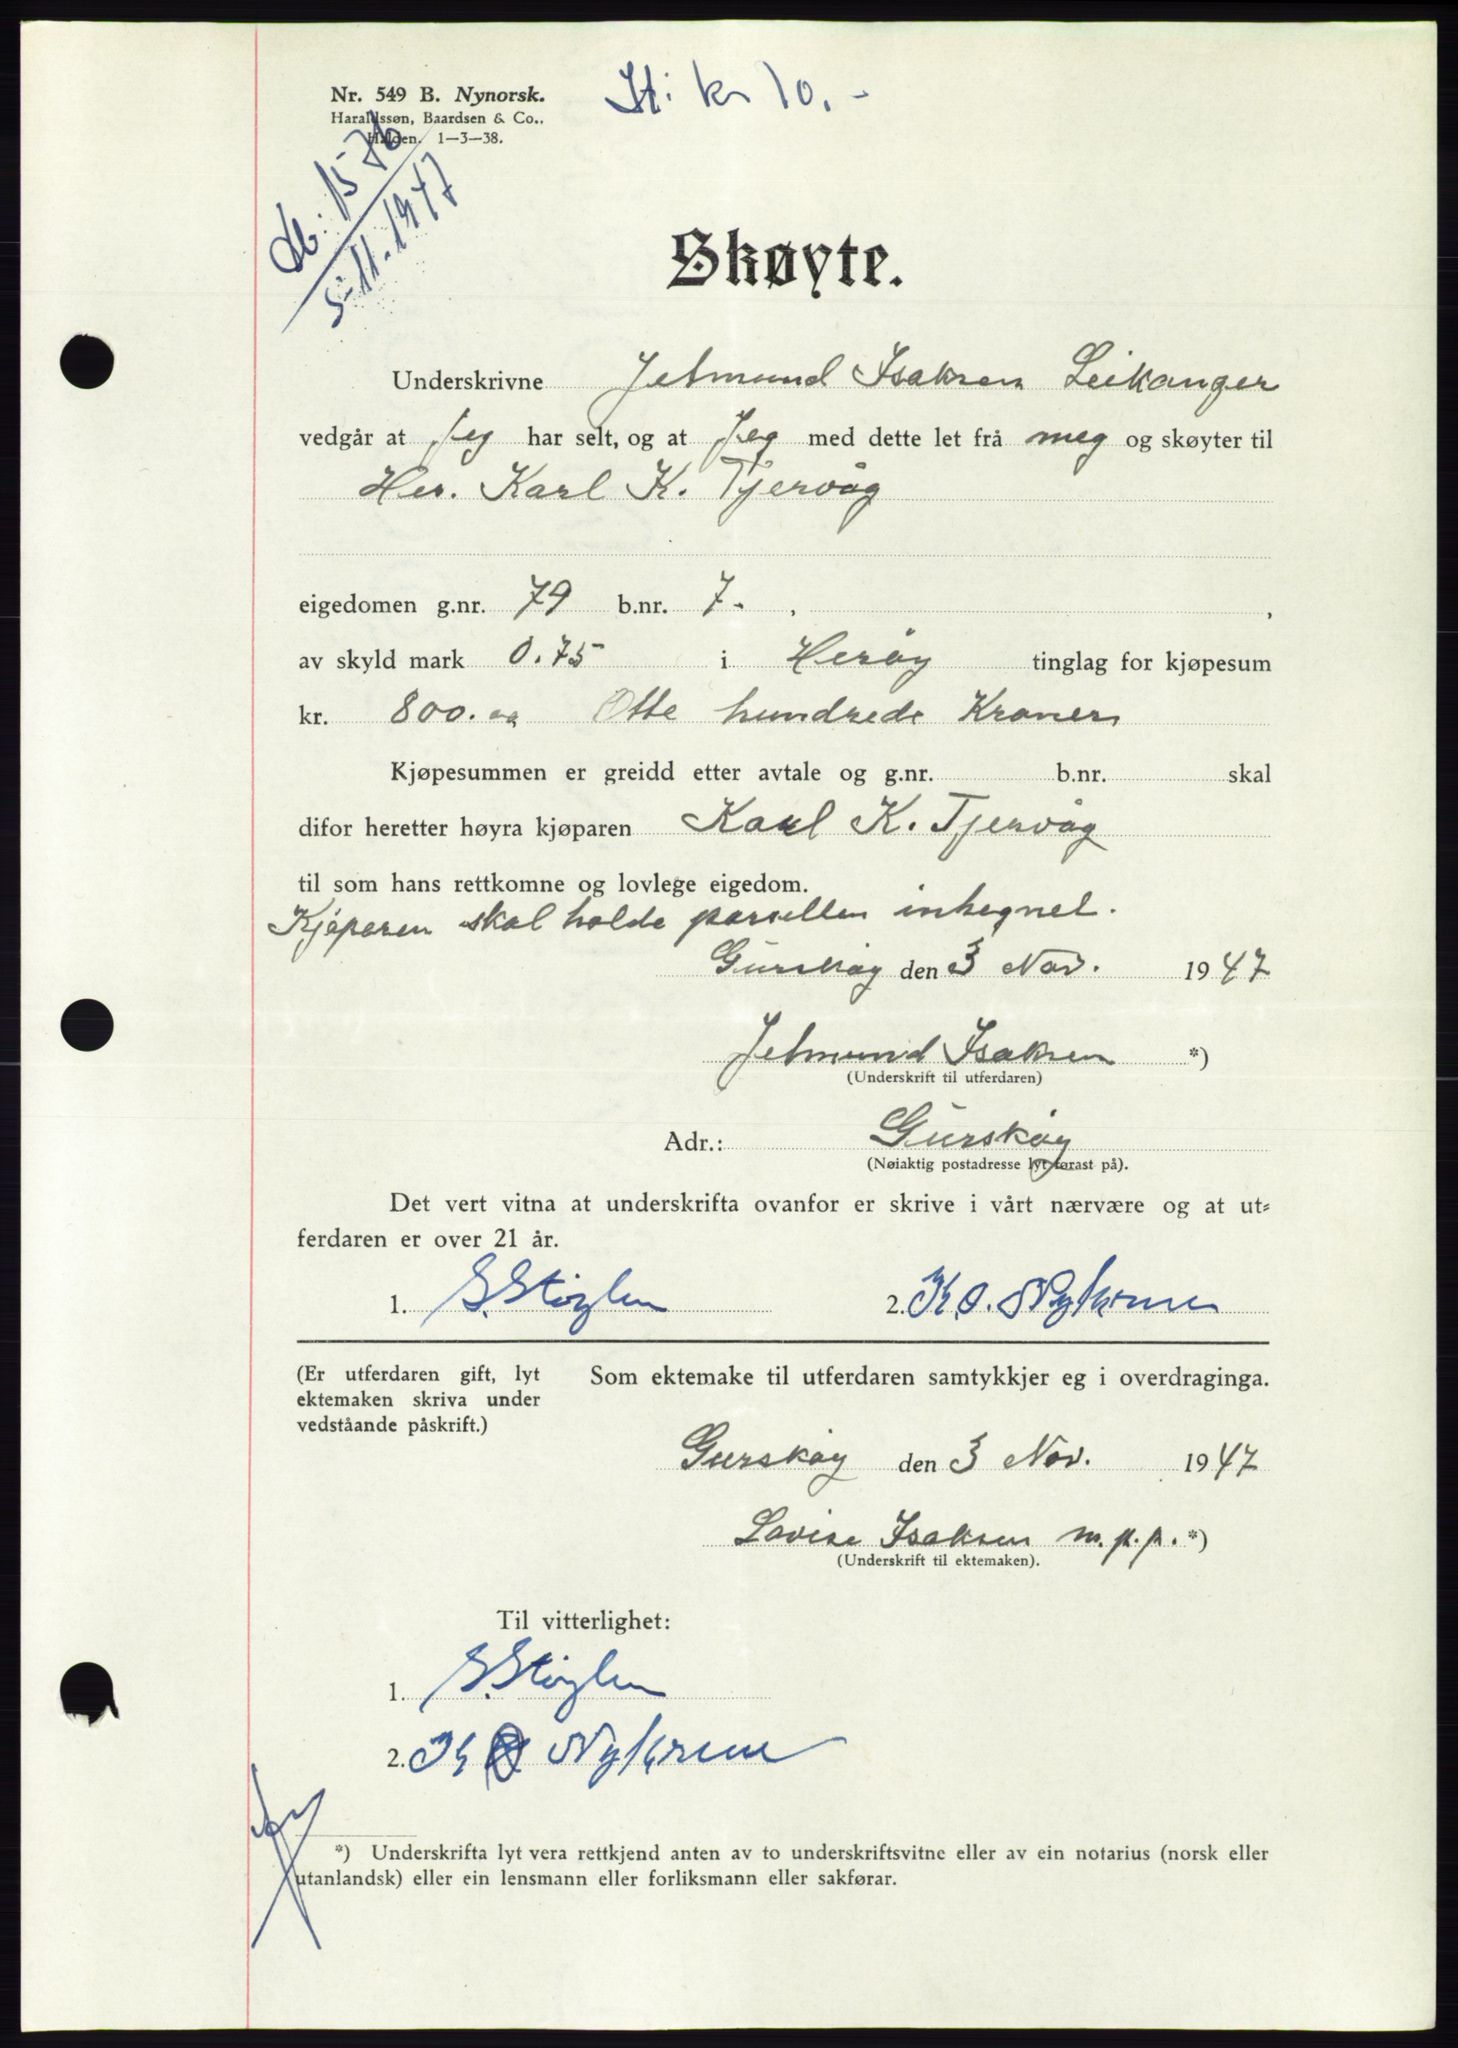 Nr. 549 B. Nynorsk.
Haraldssøn, Baardsen & Co.,
Halden. 1—3—38.
St: kr 10.-
db: 1576
5-11-1947
Skøyte.
Underskrivne Jetmund Isaksen Leikanger
vedgår at Jeg har selt, og at Jeg med dette let frå meg og skøyter til
Her. Karl K. Tjervåg
eigedomen g.nr. 79 b.nr. 7. ,
av skyld mark 0.75 i Herøy tinglag for kjøpesum
kr. 800.00 Otte hundrede Kroner
Kjøpesummen er greidd etter avtale og g.nr. b.nr. skal
difor heretter høyra kjøparen Karl K. Tjervåg
til som hans rettkomne og lovlege eigedom.
Kjøparen skal holde parsellen inhegnet.
Gurskøy den 3 Nov. 1947
Jetmund Isaksen *)
(Underskrift til utferdaren)
Adr.: Gurskøy
(Nøiaktig postadresse lyt førast på).
Det vert vitna at underskrifta ovanfor er skrive i vårt nærvære og at ut=
ferdaren er over 21 år.
1. S. Støylen 2. K O. Nykrem
(Er utferdaren gift, lyt
ektemaken skriva under
vedståande påskrift.)
Som ektemake til utferdaren samtykkjer eg i overdraginga.
Gurskøy den 3 Nov. 1947
Lovise Isaksen m.p.p. *)
(Underskrift til ektemaken).
Til vitterlighet:
1. S. Støylen
2. K O Nykrem
*) Underskrifta lyt vera rettkjend anten av to underskriftsvitne eller av ein notarius (norsk eller
utanlandsk) eller ein lensmann eller forliksmann eller sakførar.